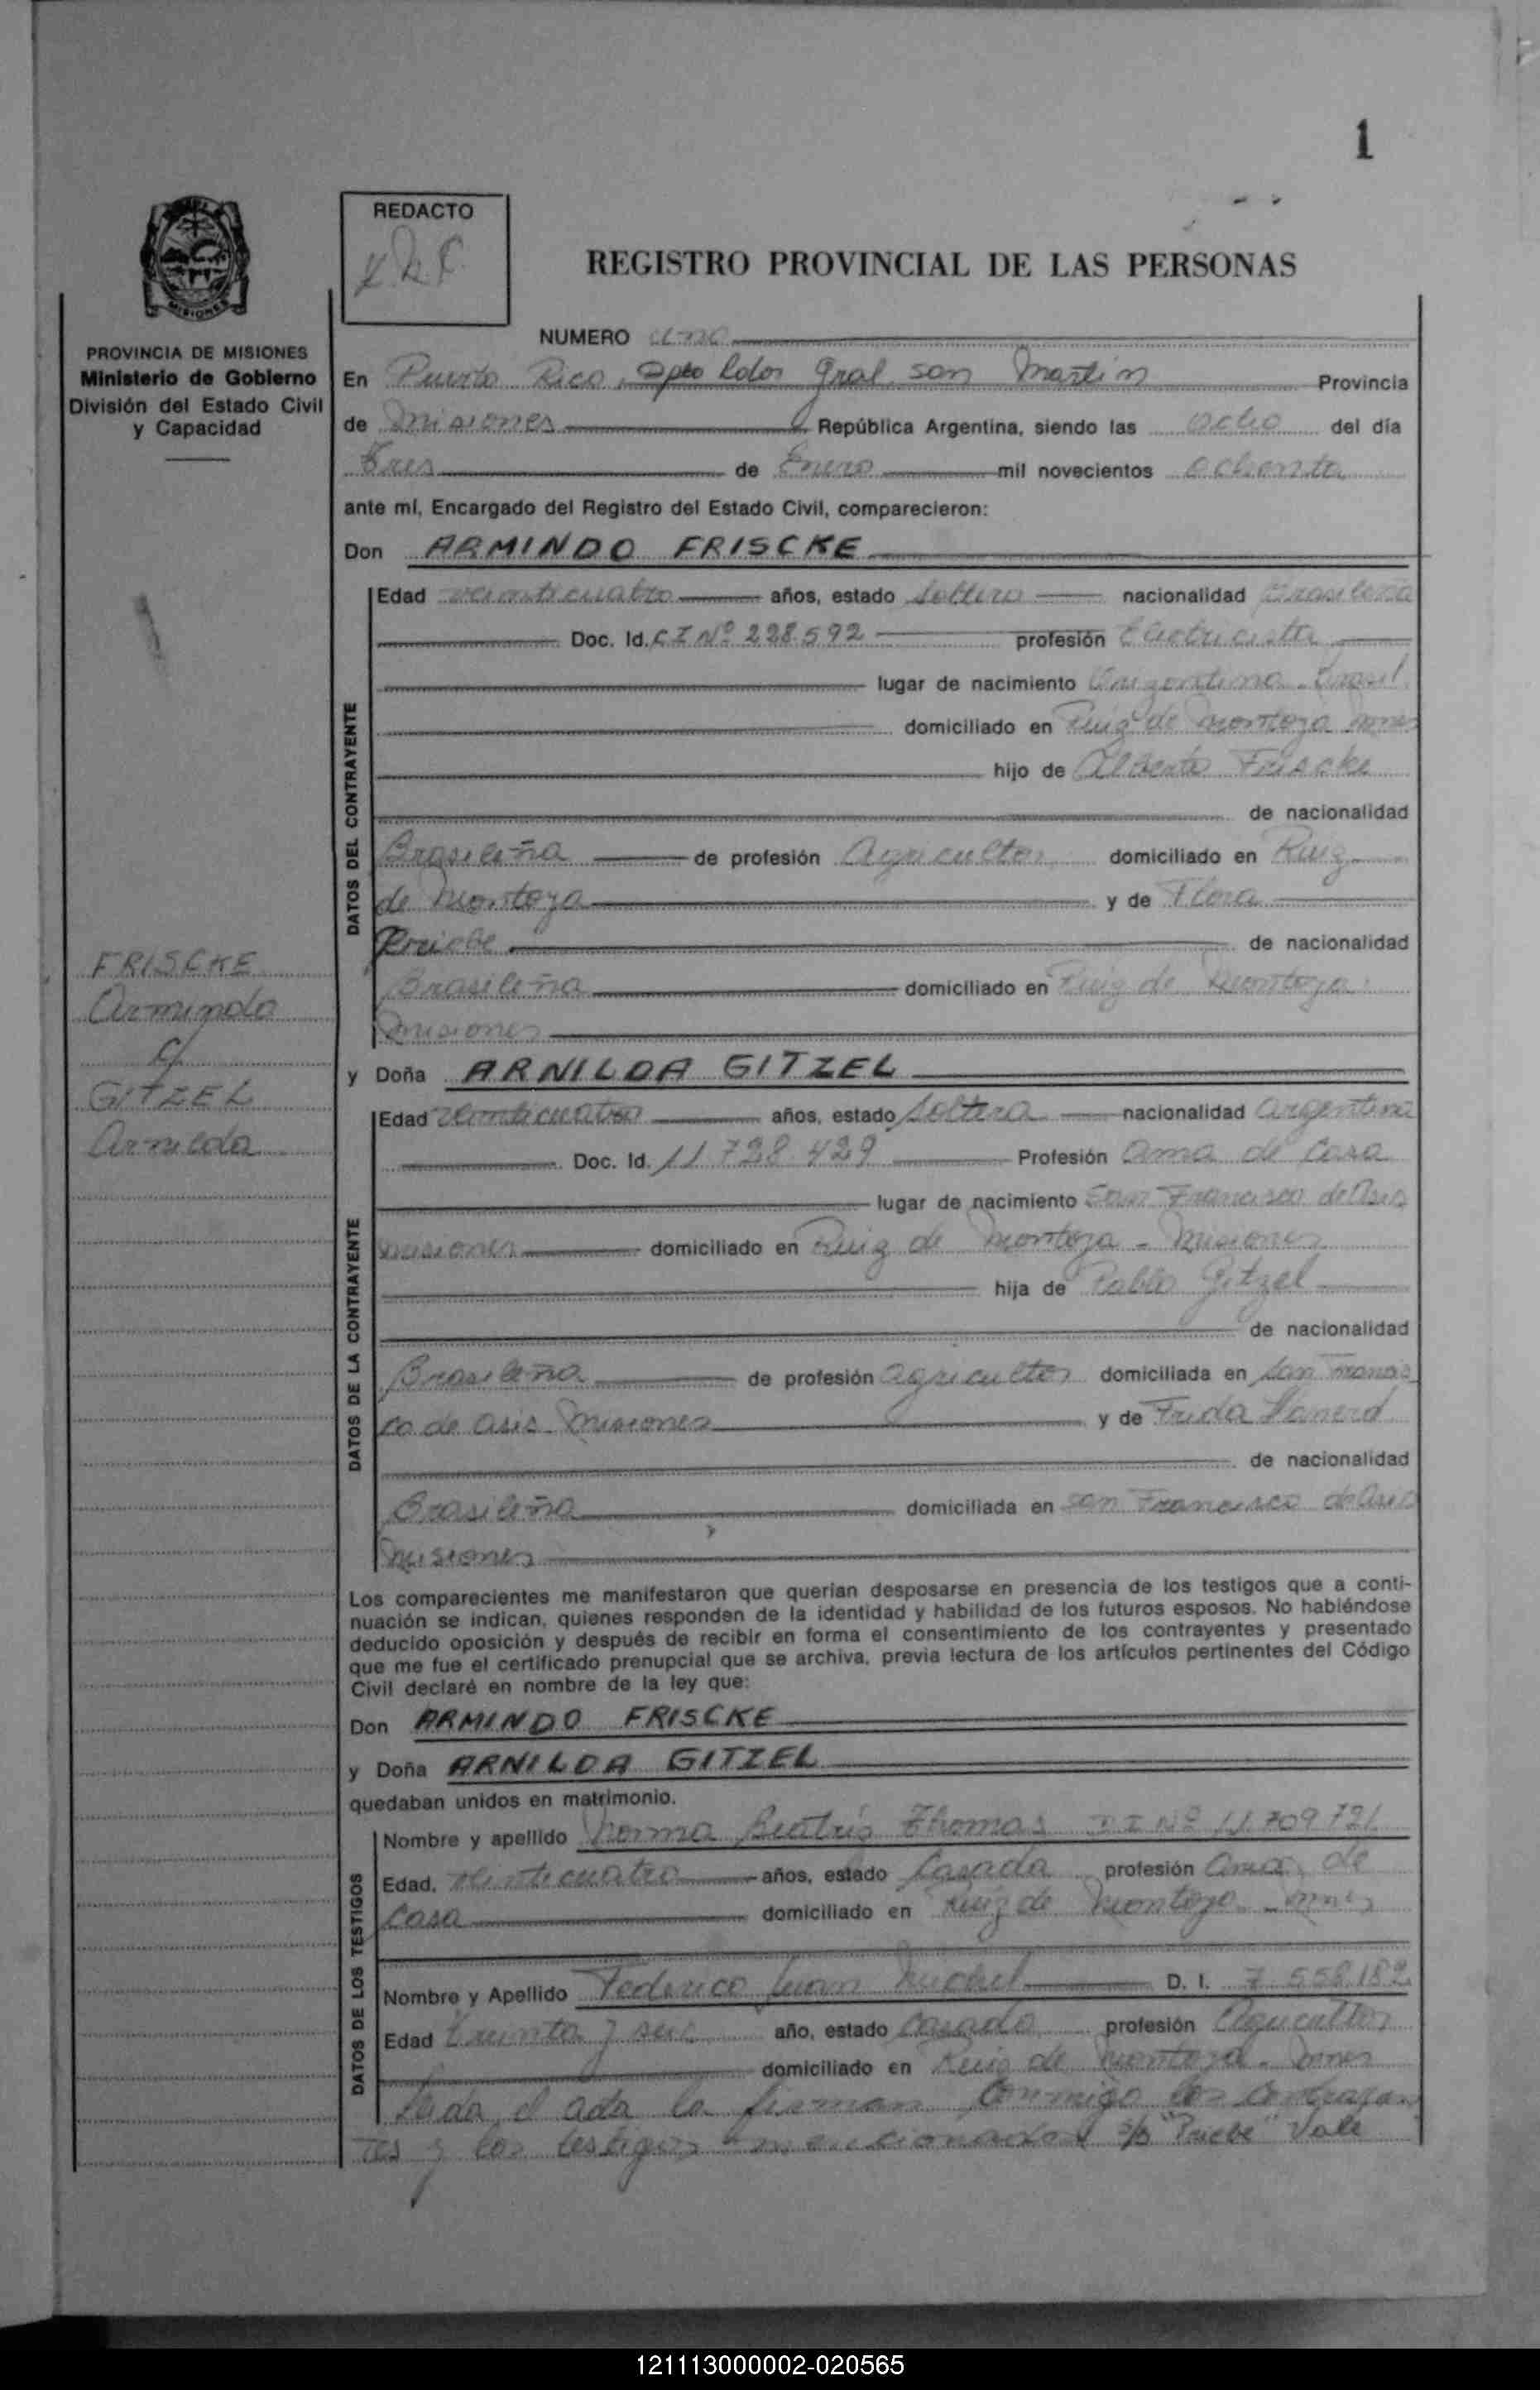 1
REDACTO
REGISTRO PROVINCIAL DE LAS PERSONAS
MISIONES
PROVINCIA DE MISIONES
Ministerio de Gobierno
División del Estado Civil
y Capacidad
FRISCKE
Armindo
c/
GITZEL
Arnilda
NUMERO uno
En Puerto Rico, Dpto Ldor Gral. San Martín Provincia
de Misiones República Argentina, siendo las ocho del día
Tres de Enero mil novecientos ochenta
ante mí, Encargado del Registro del Estado Civil, comparecieron:
Don ARMINDO FRISCKE
DATOS DEL CONTRAYENTE
Edad veinticuatro años, estado Soltero nacionalidad Brasileña
Doc. Id. C I Nº 228.592 profesión Electricista
lugar de nacimiento Brasil
domiciliado en Ruiz de Montoya Mnes
hijo de Alberto Friscke
de nacionalidad
Brasileña de profesión Agricultor domiciliado en Ruiz
de Montoya y de Flora
Priebe de nacionalidad
Brasileña domiciliado en Ruiz de Montoya
Misiones
y Doña ARNILDA GITZEL
DATOS DE LA CONTRAYENTE
Edad veinticuatro años, estado Soltera nacionalidad Argentina
Doc. Id. 11.728.429 Profesión Ama de Casa
lugar de nacimiento San Francisco de Asis
Misiones domiciliado en Ruiz de Montoya - Misiones
hija de Pablo Gitzel
de nacionalidad
Brasileña de profesión agricultor domiciliada en San Francis
co de Asis Misiones y de Frida
de nacionalidad
Brasileña domiciliada en San Francisco de Asis
Misiones
Los comparecientes me manifestaron que querían desposarse en presencia de los testigos que a conti-
nuación se indican, quienes responden de la identidad y habilidad de los futuros esposos. No habiéndose
deducido oposición y después de recibir en forma el consentimiento de los contrayentes y presentado
que me fue el certificado prenupcial que se archiva, previa lectura de los artículos pertinentes del Código
Civil declaré en nombre de la ley que:
Don ARMINDO FRISCKE
y Doña ARNILDA GITZEL
quedaban unidos en matrimonio.
DATOS DE LOS TESTIGOS
Nombre y apellido Norma Beatris Thomas D I Nº 11.709.721
Edad, veinticuatro años, estado Casada profesión Ama de
Casa domiciliado en Ruiz de Montoya - Mnes
Nombre y Apellido Federico Juan D. I. 7.558.182
Edad treinta y seis año, estado Casado profesión Agricultor
domiciliado en Ruiz de Montoya - Mnes
Leida el acta la firman conmigo los contrayen
tes y los testigos mencionados s/b "Priebe" Vale
121113000002-020565